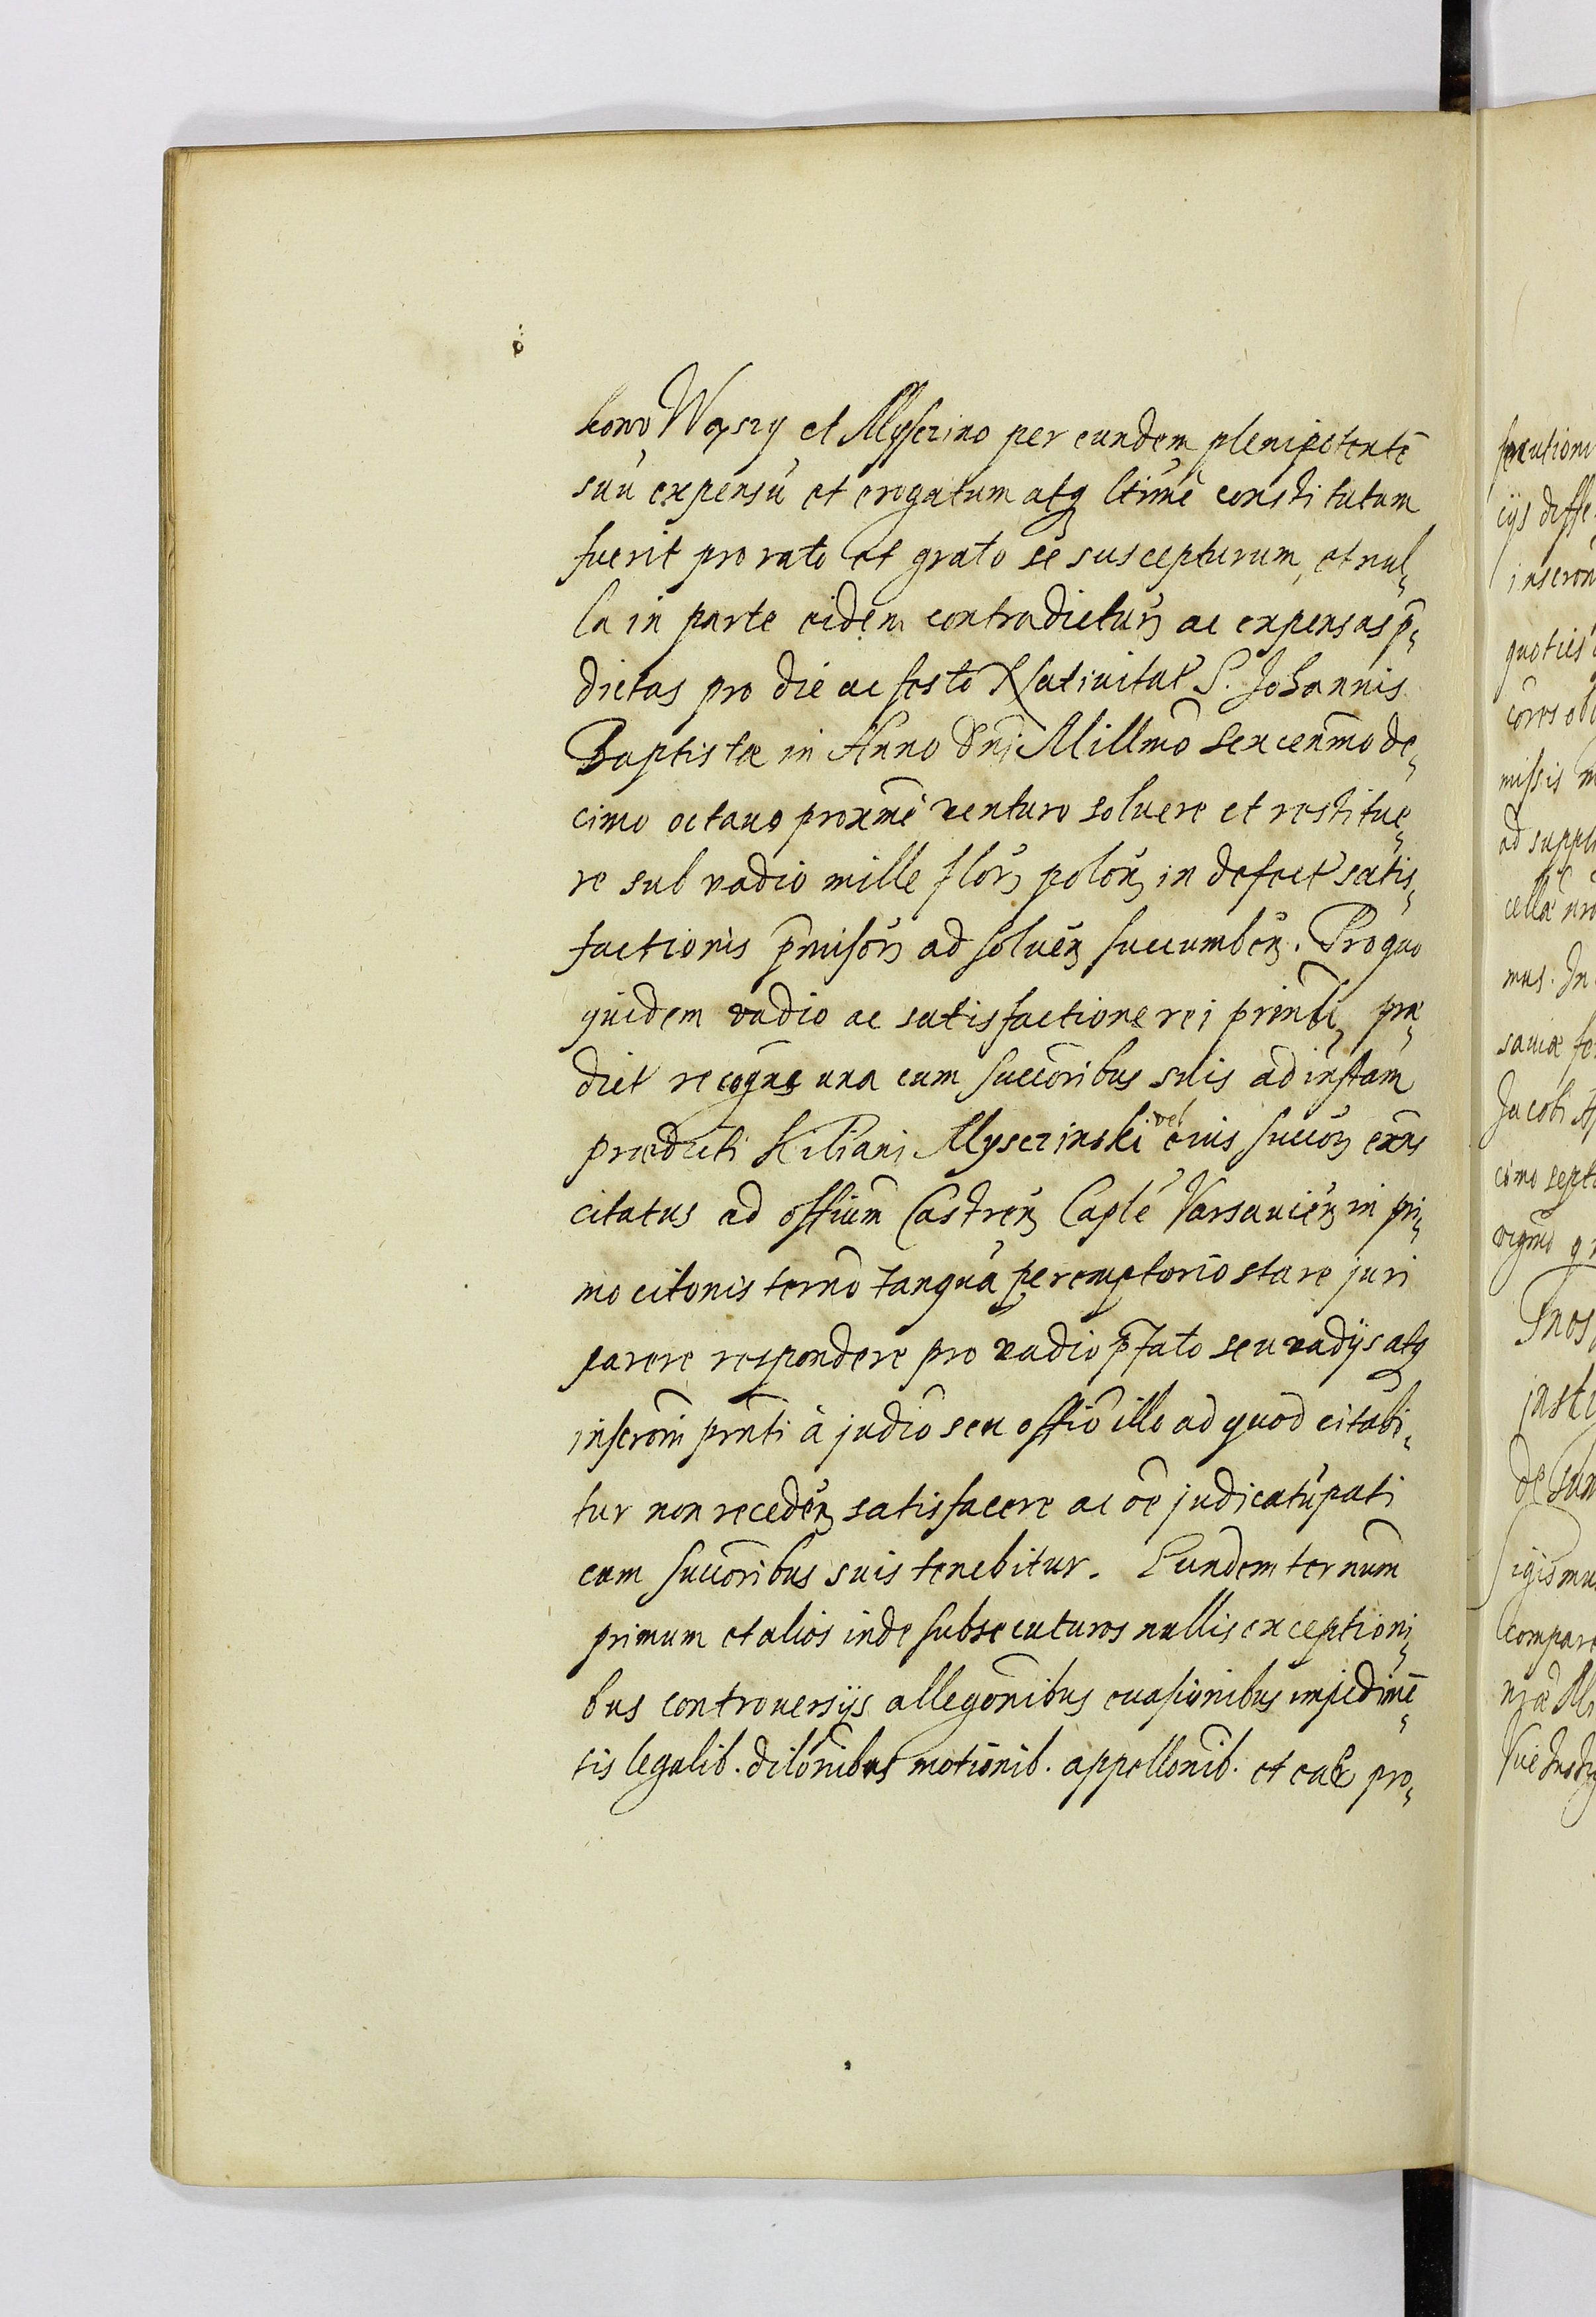 kowo Wąszy et Mysczino per eundem plenipotentē
suū expensū et erogatum atq ltimē constitutum
fuerit pro rato et grato se suscepturum, et nul,
la in parte eidem contradicturꝫ ac expensas p̄,
dictas pro die ac festo Natiuitat S. Johannis
Baptistæ in Anno Dnj Millmo sexcenmo de,
cimo octauo proxme venturo soluere et restitue,
re sub vadio mille florꝫ polonꝫ in defect satis,
factionis p̄missorꝫ ad soluenꝫ succumbenꝫ. Pro quo
quidem vadio ac satisfactione rei princli, præ,
dict recogns una cum succoribus suis ad instam
prædicti Kiliani Mysczinski vel eius succorꝫ exns
citatus ad offium Castrenꝫ Caple Varsauienꝫ in pri,
mo citonis termo tanquā peremptorio stare juri
parere respondere pro vadio p̄fato seu vadijs atq
inscroni pnti à judio seu offio illo ad quod citabi,
tur non recedenꝫ satisfacere ac oē judicatū pati
cum succoribus suis tenebitur. Eundem ternum
primum et alios inde subsecuturos nullis exceptioni,
bus controuersijs allegonibus euasionibus impedimē,
tis legalib. dilonibus motionib. appellonib. et
pro,
cijs diffe
quoties
missis
ad supple
mus. In
sauiæ
Jacobi
cimo septi
igismu
compare